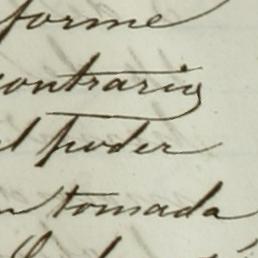 forme
contrario
el poder
n tomada